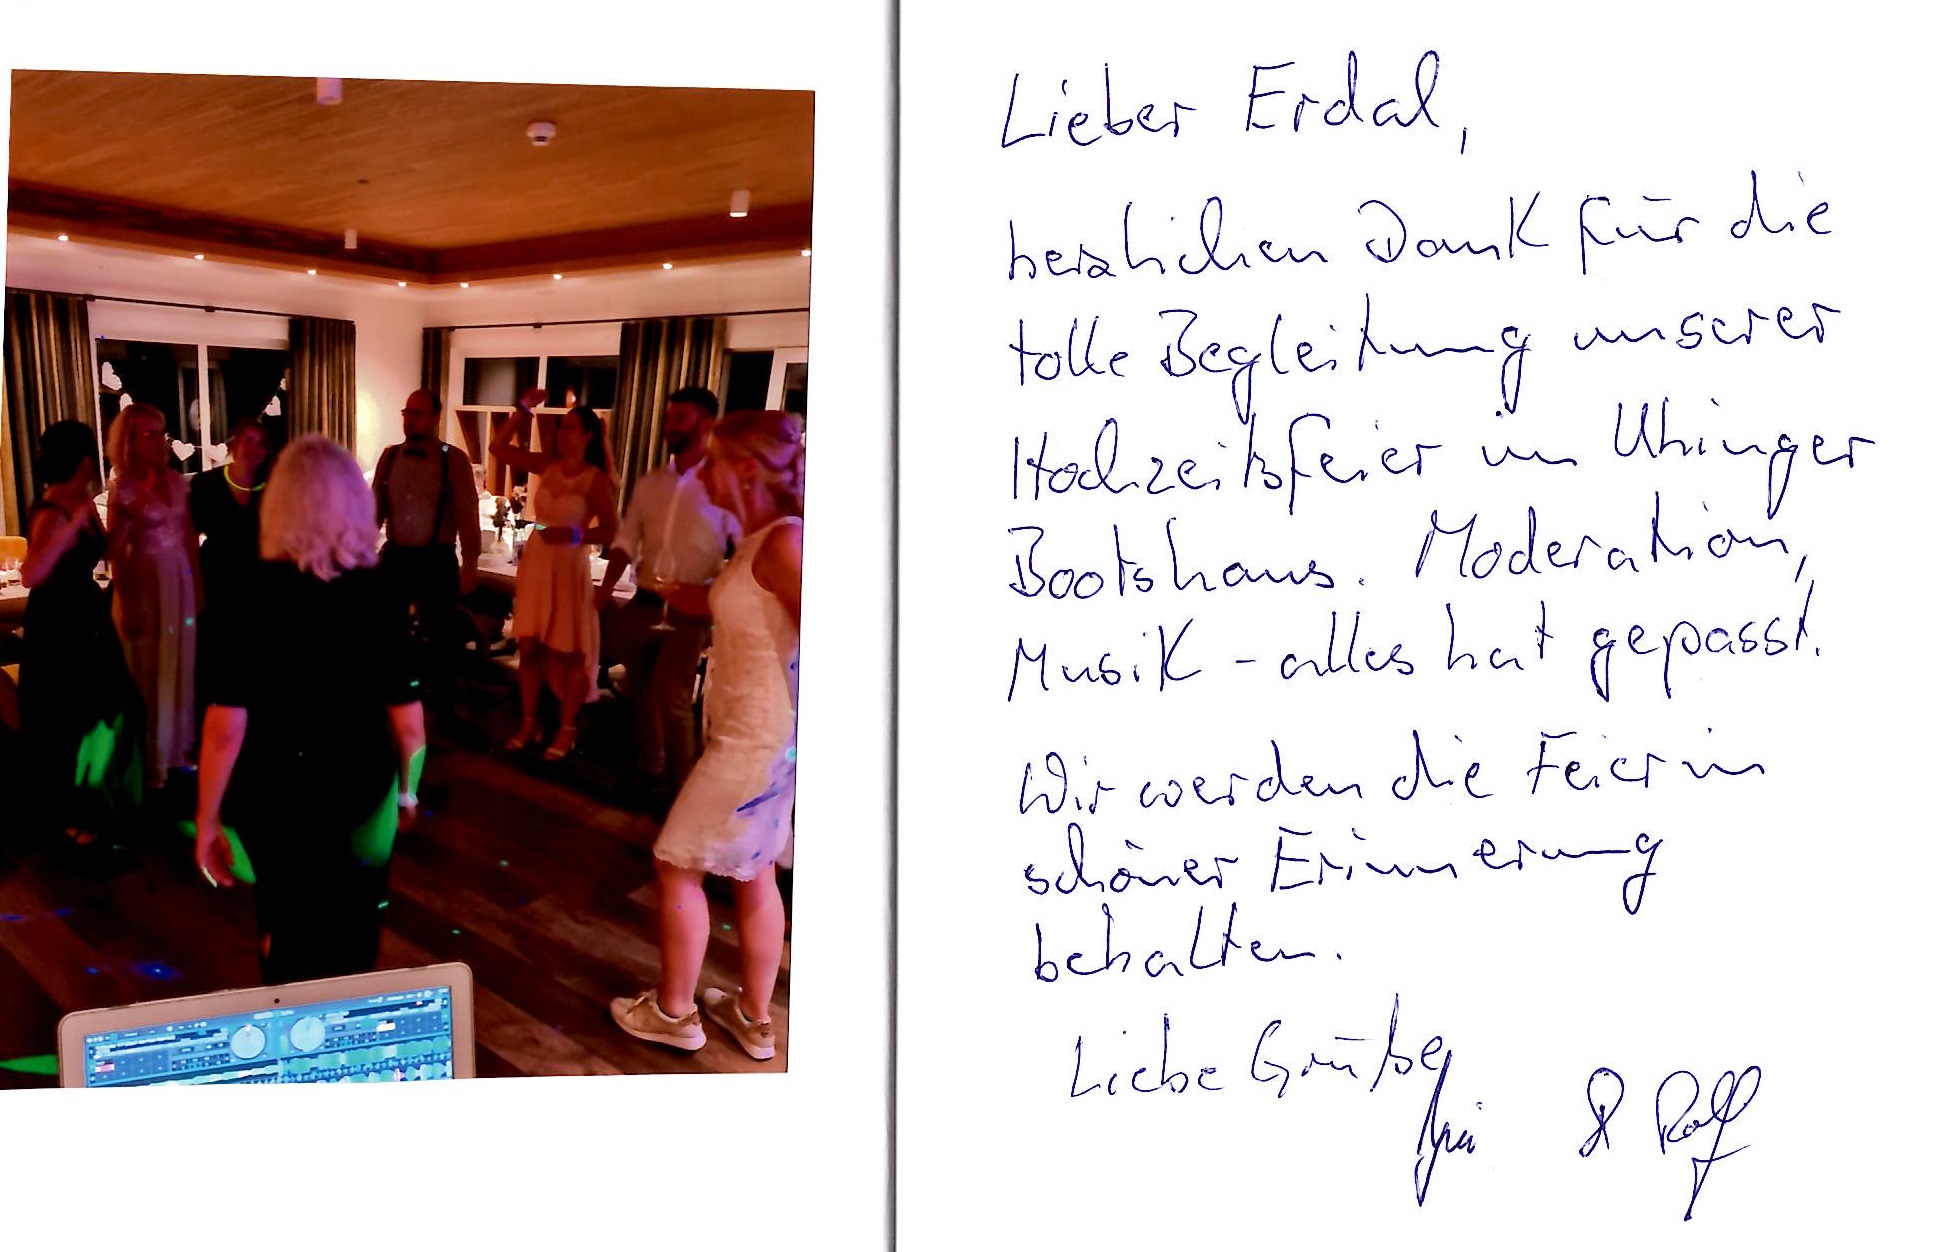 Lieber Erdal,
herzlichen Dank für die
tolle Begleitung unserer
Hochzeitsfeier im Uhinger
Bootshaus. Moderation,
Musik - alles hat gepasst.
Wir werden die Feier in
schöner Erinnerung
behalten.
Liebe Grüße
& Ralf